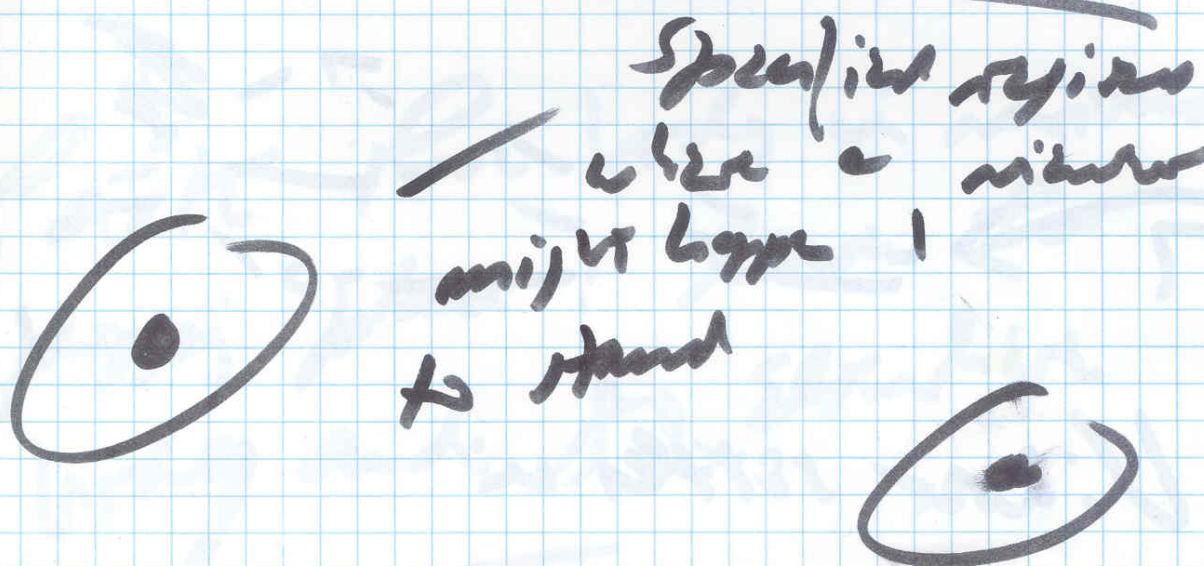 Specified regions
where a viewer
might happen
to stand